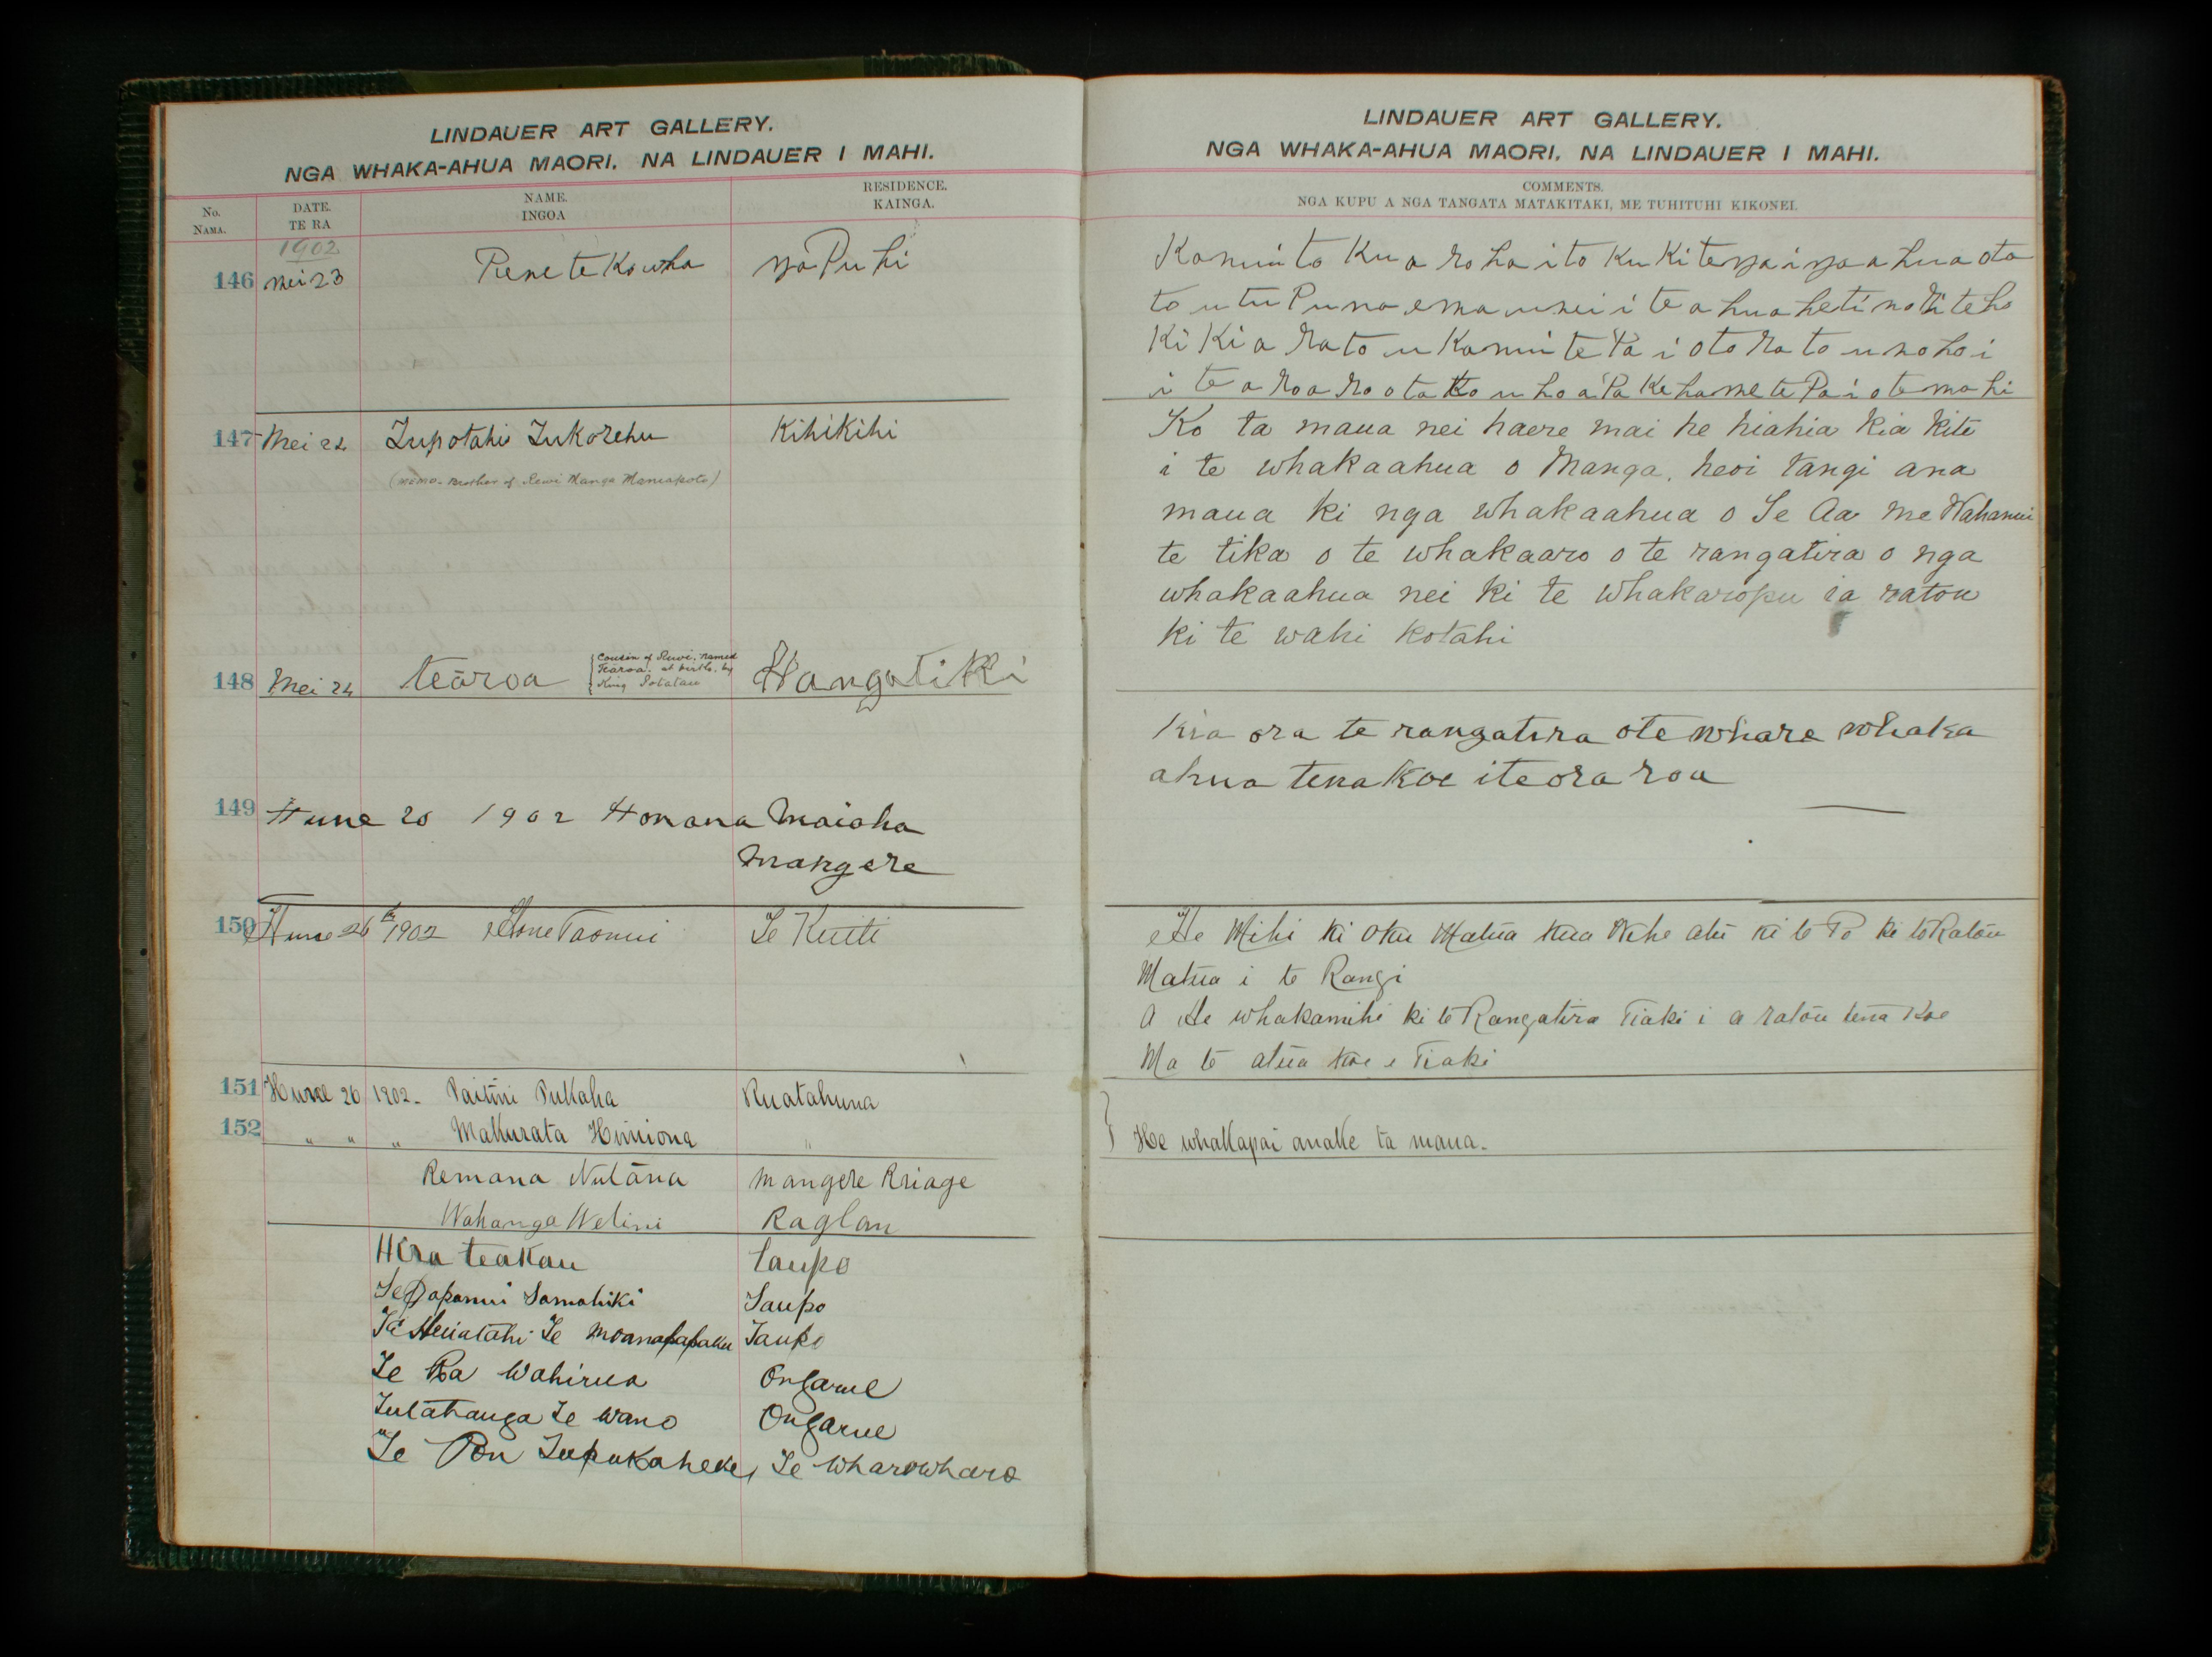 LINDAUER ART GALLERY.
NGA WHAKA-AHUA MAORI. NA LINDAUER I MAHI.
No. NAMA. DATE. TE RA NAME. INGOA RESIDENCE. KAINGA.
1902
146 Mei 23 Pene te Kowha ngaPuhi
147 Mei 24 Tupotahi Tukorehu Kihikihi
(memo. Brother of Rewi Manga Maniapoto)
148 Mei 24 teāroa {Cousin of Rewi, named Tearoa, at birth, by King Potatau Hangatiki
149 Hune 20 1902 Honana Maioha
mangere
150 Hune 26th 1902 Hone Taonui Te Kuiti
151 Hune 26 1902. Paitini Pukaha Ruatahuna
152 " " " Makurata Himiona "
Remana Nutāna mangere Briage
Wahanga Wetini Raglan
Hira teakau taupo
Te Papanui Tamahiki Taupo
Te Heuatahi Te moanapapaku Taupo
Te Ra Wahirua Ongarue
Tutahanga Te Wano Ongarue
Te Pou Tupukaheke, Te Wharowharo
LINDAUER ART GALLERY.
NGA WHAKA-AHUA MAORI. NA LINDAUER I MAHI.
COMMENTS.
NGA KUPU A NGA TANGATA MATAKITAKI, ME TUHITUHI KIKONEI.
Ka nui to Ku a roha i to Ku Kitenga i nga ahua oto
to u tu Puna e mau nei i te ahua heti no Ki te ho
Ki Ki a Rato u Ka nui te Pa i oto Ra to u no ho i
i te a Roa Ro o ta Ko u ho a Pa Ke ha me te Pa i o te ma hi
Ko ta maua nei haere mai he hiahia kia kite
i te whakaahua o Manga, heoi tangi ana
maua ki nga whakaahua o Te Aa me Wahanui
te tika o te whakaaro o te rangatira o nga
whakaahua nei ki te whakaropu ia ratou
ki te wahi kotahi
Kia ora te rangatira ote whare whaka
ahua tena Koe iteora roa
He Mihi ki oku Matua kua Riko atu ki te Po ki to Ratou
Matua i te Rangi
A He whakamihi ki te Rangatira Tiaki i a ratou tena Koe
Ma te atua koe e Tiaki
} He whakapai anake ta maua.